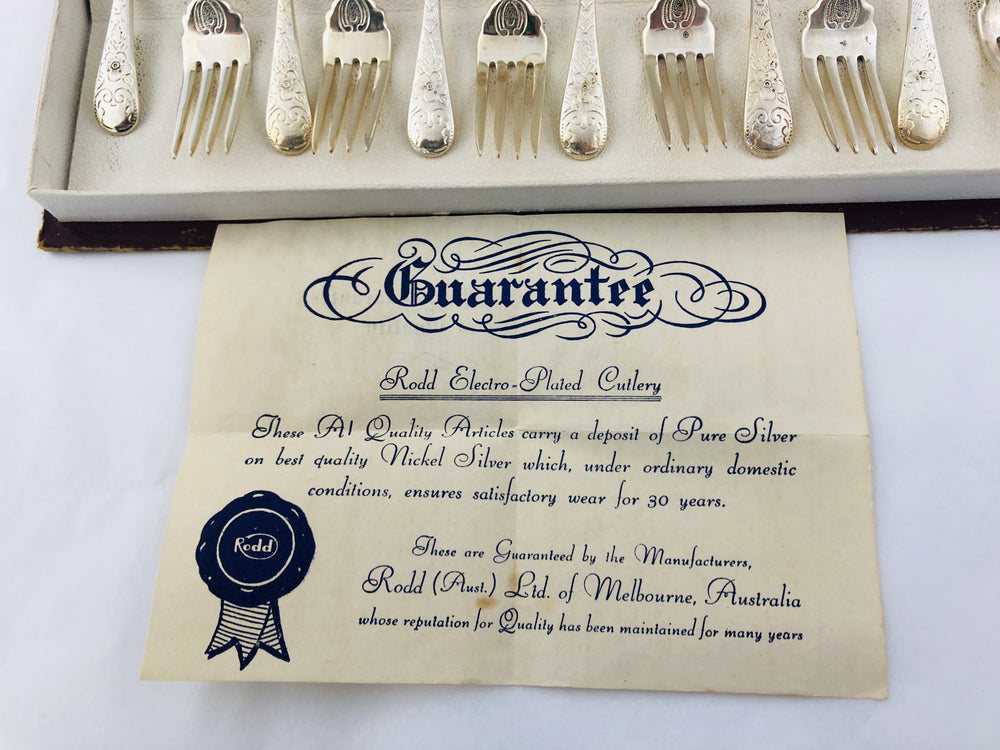 Guarantee
Rodd Electro-Plated Cutlery
These A1 Quality Articles carry a deposit of Pure Silver
on best quality Nickel Silver which, under ordinary domestic
conditions, ensures satisfactory wear for 30 years.
Rodd
These are Guaranteed by the Manufacturers,
Rodd (Aust.) Ltd. of Melbourne, Australia
whose reputation for Quality has been maintained for many years